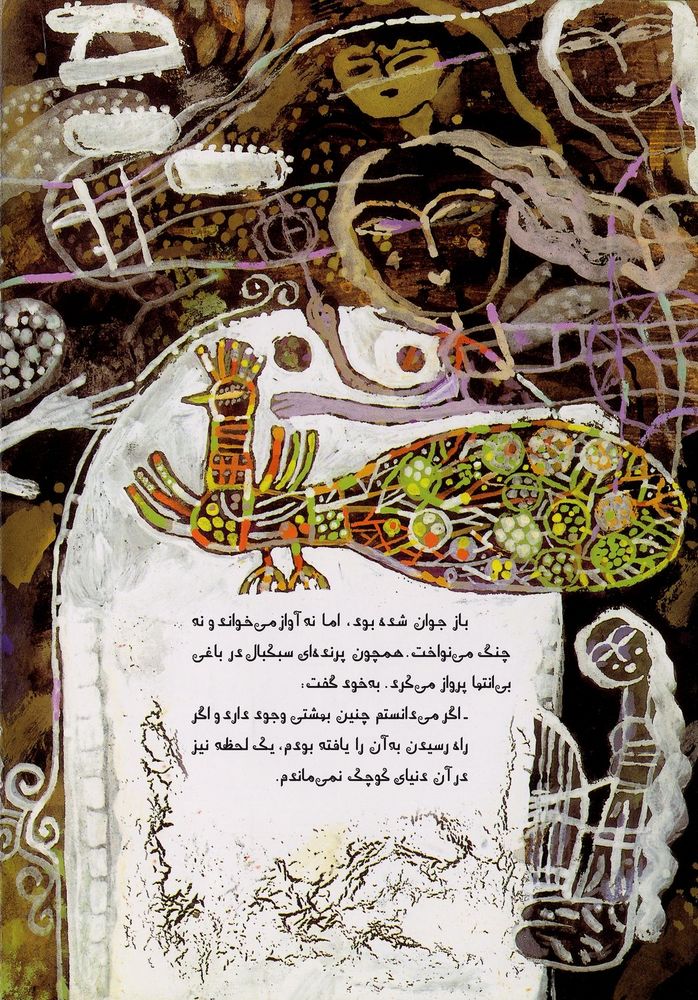 باز جوان شده بود، اما نه آواز می‌خواند و نه
چنگ می‌نواخت. همچون پرنده‌ای سبکبال در باغی
بی‌انتها پرواز می‌کرد. به‌خود گفت:
ـ اگر می‌دانستم چنین بهشتی وجود دارد و اگر
راه رسیدن به‌آن را یافته بودم، یک لحظه نیز
در آن دنیای کوچک نمی‌ماندم.